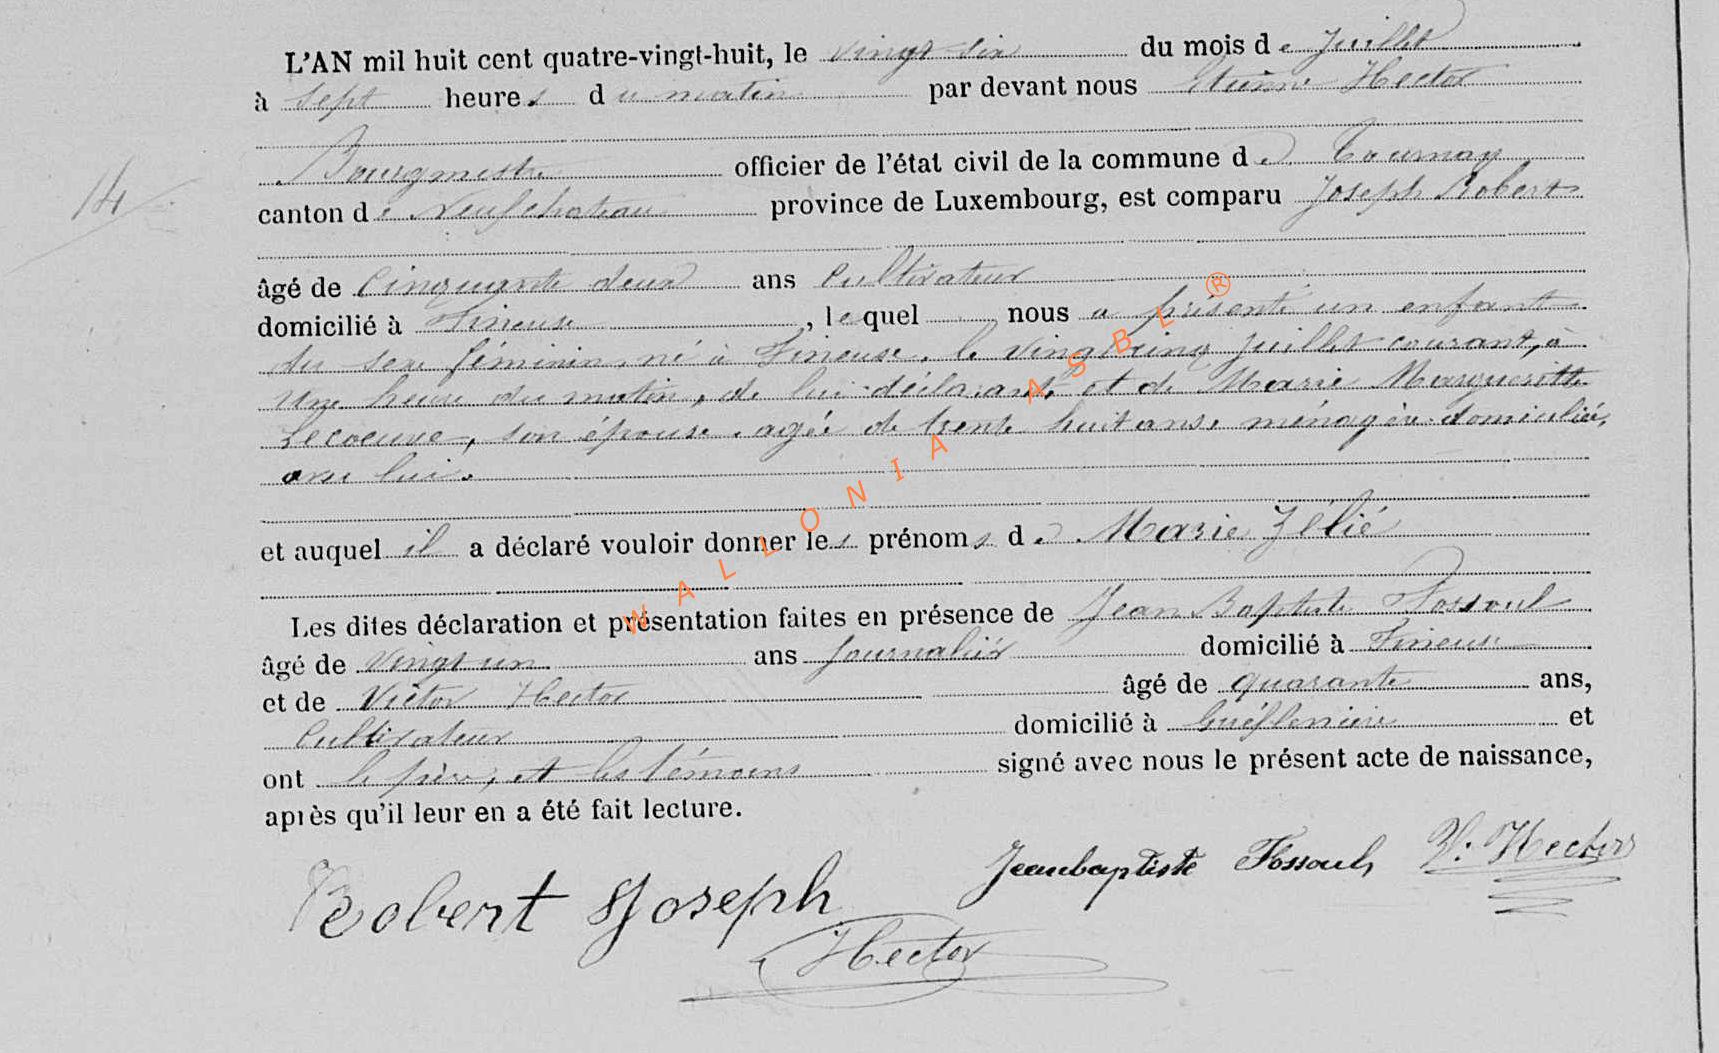 L'AN mil huit cent quatre-vingt-huit, le vingt six du mois de Juillet
à sept heures du matin par devant nous Etienne Hector
Bourgmestre officier de l'état civil de la commune de Tournay
14
canton de Neufchateau province de Luxembourg, est comparu Joseph Robert
âgé de Cinquante deux ans Cultivateur
domicilié à Fineuse, lequel nous a présenté un enfant
du sexe féminin, né à Fineuse, le vingt cinq Juillet courant, à
une heure du matin, de lui déclarant, et de Marie Margueritte
Lecoeuve, son épouse, agée de trente huit ans, ménagère domiciliée,
avec lui.
et auquel il a déclaré vouloir donner les prénoms de Marie Zélié
Les dites déclaration et présentation faites en présence de Jean Baptiste Fossoul
âgé de vingt un ans Journalier domicilié à Fineuse
et de Victor Hector âgé de quarante ans,
Cultivateur domicilié à et
ont le père, et les témoins signé avec nous le présent acte de naissance,
après qu'il leur en a été fait lecture.
Robert Joseph Jeanbaptiste Fossoul V. Hector
Hector
WALLONIA ASBL ®